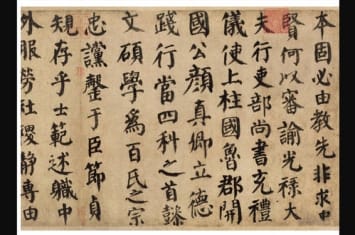 本固必由教先非求忠
賢何以審諭光祿大
夫行吏部尚書充禮
儀使上柱國魯郡開
國公顏真卿立德
踐行當四科之首懿
文碩學為百氏之宗
忠讜罄于臣節貞
規存乎士範述職中
外服勞社稷靜專由